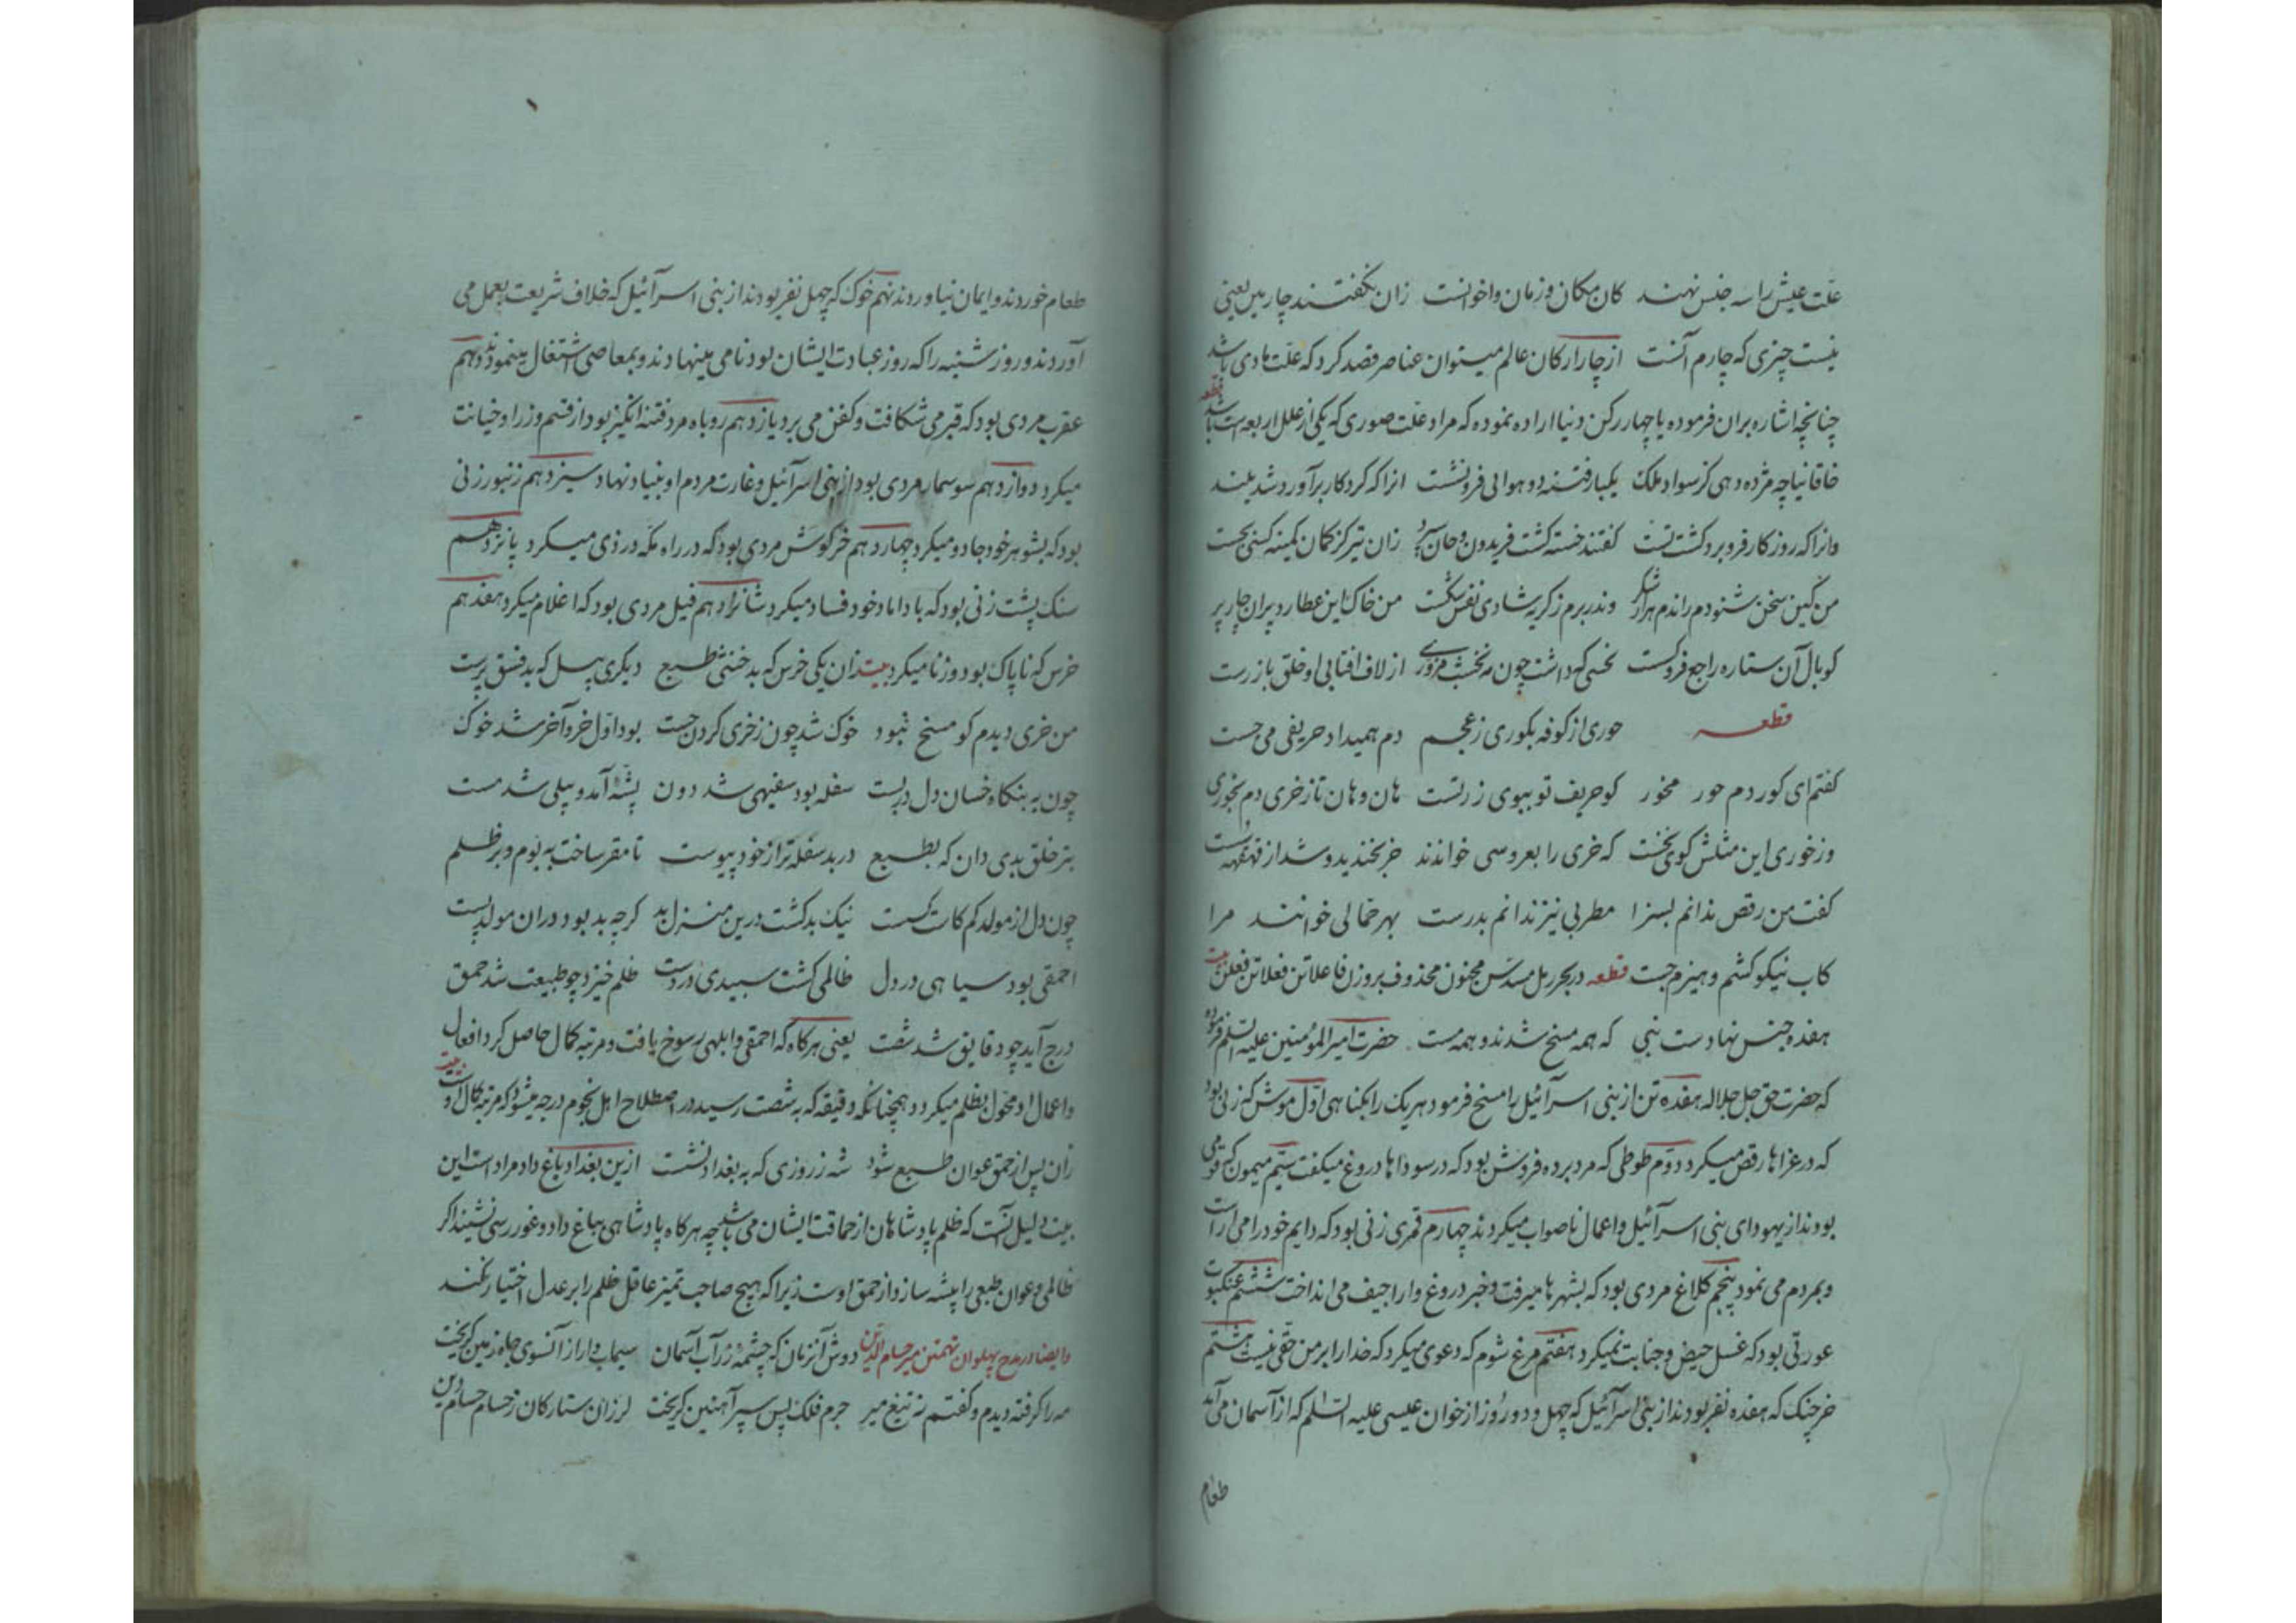 علّت عیش را سه جنس نهند کان مکان و زمان و اخوانست زان نگفتند چار بین یعنی
نیست چیزی که چارم آنست از چار ارکان عالم میتوان عناصر قصد کرد که علّت مادی باشد
چنانچه اشاره بران فرموده یا چهار رکن دنیا اراده نموده که مراد علّت صوری که یکی از علل اربعه است باشد قطعه
خاقانیا چه مژده دهی کز سواد ملک یکباره فتنه دو هوایی فرو نشست انرا که کردکار برآورد شد بلند
وانرا که روزکار فرو برد کشت پست کفتند خسته کشت فریدون و جان سپرد زان تیر کز کمان کمینه کسی بجست
من کین سخن شنودم راندم هزار شکر وندر برم ز کریه شادی نفس شکست من خاک این عطارد پران چار پر
کو بال آن ستاره راجع فرو کست نحسی که داشت چون مه نخشب مزوری از لاف افتابی او خلق باز رست
قطعه حوری از کوفه بکوری ز عجم دم همیداد و حریفی می جست
کفتم ای کور دم حور مخور کو حریف تو ببوی زر تست هان و هان تا ز خری دم نخوری
ور خوری این مثلش کوی نخست که خری را بعروسی خواندند خر بخندید و شد از قهقهه سست
کفت من رقص ندانم بسزا مطربی نیز ندانم بدرست بهر حمالی خوانند مرا
کاب نیکو کشم و هیزم جست قطعه در بحر رمل مسدس مخبون محذوف بر وزن فاعلاتن فعلاتن فعلن بیت
هفده جنس نهادست نبی که همه مسخ شدند و همه مست حضرت امیر المؤمنین علیه السّلم فرموده
که حضرت حق جلّ جلاله هفده تن از بنی اسرآئیل را مسخ فرمود هر یک را بکناهی اوّل موش که زنی بود
که در عزاها رقص میکرد دوّم طوطی که مرد برده فروش بود که در سوداها دروغ میکفت سیّم میمون که قومی
بودند از یهودای بنی اسرآئیل و اعمال ناصواب میکردند چهارم قمری زنی بود که دایم خود را می آراست
و بمردم می نمود پنجم کلاغ مردی بود که بشهرها میرفت و خبر دروغ و اراجیف می انداخت ششم عنکبوت
عورتی بود که غسل حیض و جنابت نمیکرد هفتم مرغ شوم که دعوی میکرد که خدا را بر من حقّی نیست هشتم
خرچنک که هفده نفر بودند از بنی اسرآئیل که چهل و دو روز از خوان عیسی علیه السّلم که از آسمان می آمد
طعام
طعام خوردند و ایمان نیاوردند نهم خوک که چهل نفر بودند از بنی اسرآئیل که خلاف شریعت بعمل می
آوردند و روز شنبه را که روز عبادت ایشان بود نامی مینهادند و بمعاصی اشتغال مینمودند دهم
عقرب مردی بود که قبر می شکافت و کفن می برد یازدهم روباه مرد فتنه انکیز بود از قسم وزرا و خیانت
میکرد دوازدهم سوسمار مردی بود از بنی اسرآئیل و غارت مردم او بنیاد نهاد سیزدهم زنبور زنی
بود که بشوهر خود جادو میکرد چهاردهم خرکوش مردی بود که در راه مکّه دزدی میکرد پانزدهم
سنک پشت زنی بود که با داماد خود فساد میکرد شانزدهم فیل مردی بود که اغلام میکرد هفدهم
خرس که ناپاک بود و زنا میکرد بیت زان یکی خرس که بد خنثی طبع دیکری پیل که بد فسق پرست
من خری دیدم کو مسخ نبود خوک شد چون ز خری کردن جست بود اوّل خر و آخر شد خوک
چون به بنکاه خسان دل در بست سفله بود سفیهی شد دون پشّهٔ آمد و پیلی شد مست
بتر خلق بدی دان که بطبع در بد سفله تر از خود پیوست تا مقر ساخت به بوم و بر ظلم
چون دل از مولد کم کات کسست نیک بد کشت درین منزل بد کرچه بد بود در آن مولد پست
احمقی بود سیاهی در دل ظالمی کشت سپیدی در دست ظلم خیزد چو طبیعت شد حمق
درج آید چو دقایق شد شصت یعنی هرکاه که احمقی و ابلهی رسوخ یافت و مرتبه کمال حاصل کرد افعال
و اعمال او محوّل بظلم میکردد همچنانکه دقیقه که به شصت رسید در اصطلاح اهل نجوم درجه میشود که مرتبه کمال اوست بیت
زان پس از حمق عوان طبع شود شه ز روزی که به بغداد نشست ازین بغداد باغ داد مراد است این
بیت دلیل آنست که ظلم پادشاهان از حماقت ایشان می باشد چه هرکاه پادشاهی بباغ داد و غوررسی نشیند اکر
ظالمی و عوان طبعی را پیشه سازد از حمق اوست زیرا که هیچ صاحب تمیز عاقل ظلم را بر عدل اختیار نکند
و ایضا در مدح پهلوان تهمتن میر حسام الدّین دوش آنزمان که چشمهٔ زر آب آسمان سیماب وار از آنسوی چاه زمین کریخت
مه را کرفته دیدم و کفتم ز تیغ میر جرم فلک پس سپر آهنین کریخت لرزان ستارکان ز حسام حسام دین